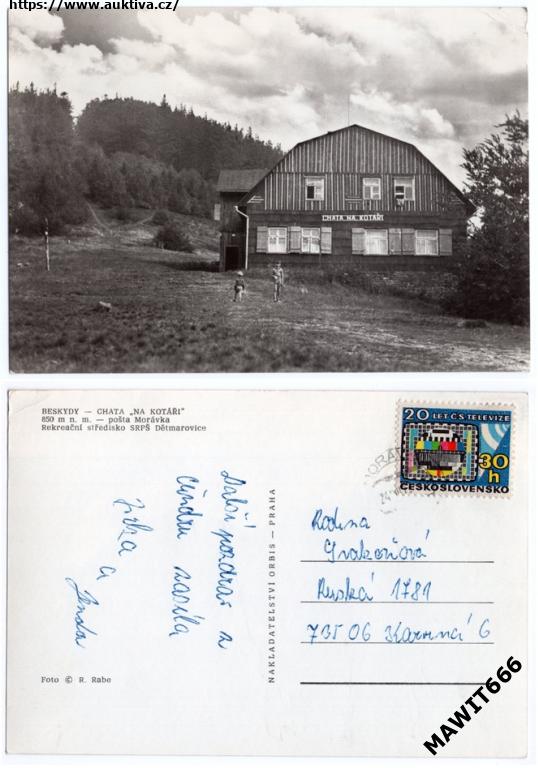 https://www.auktiva.cz/
CHATA NA KOTÁŘI
BESKYDY — CHATA „NA KOTÁŘI"
850 m n. m. — pošta Morávka
Rekreační středisko SRPŠ Dětmarovice
20 LET ČS TELEVIZE
30
h
ČESKOSLOVENSKO
pozdrav z
Jirka a
Jenda
NAKLADATELSTVÍ ORBIS — PRAHA
Rodina
Ruská 1781
735 06 Karviná 6
Foto © R. Rabe
MAWIT666